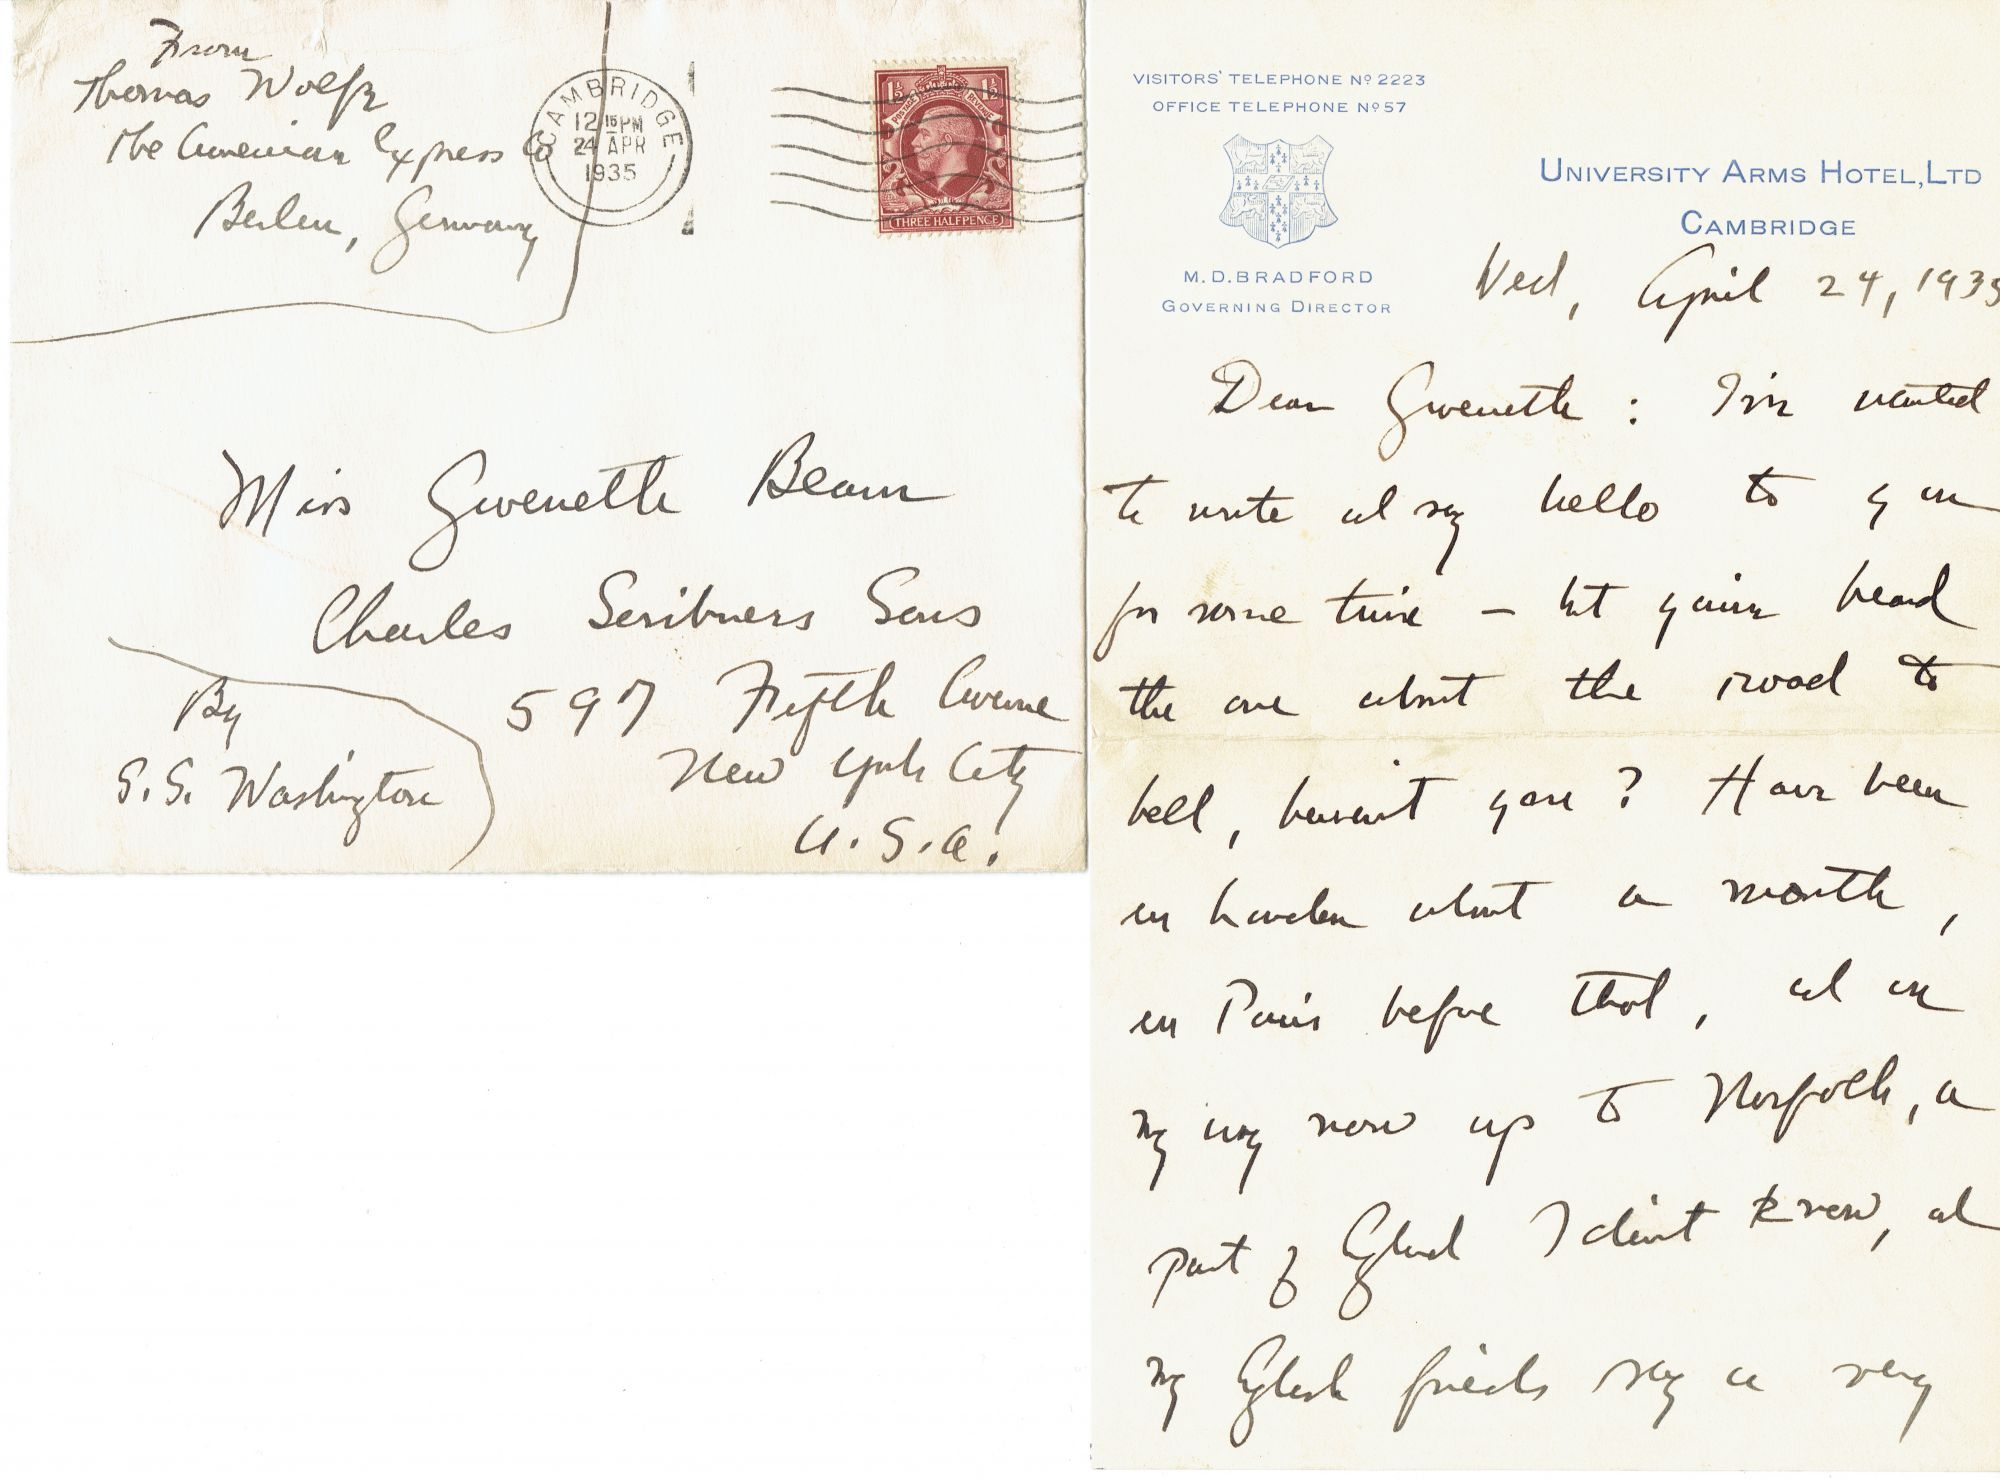 From
Thomas Wolfe
The American Express Co
Berlin, Germany
CAMBRIDGE
12 15 PM
24 APR
1935
1½ 1½
POSTAGE REVENUE
THREE HALFPENCE
Miss Gwenette Beam
Charles Scribners Sons
597 Fifth Avenue
New York City
U.S.A.
By
S.S. Washington
VISITORS' TELEPHONE Nº 2223
OFFICE TELEPHONE Nº 57
UNIVERSITY ARMS HOTEL, LTD
CAMBRIDGE
M.D. BRADFORD
GOVERNING DIRECTOR
Wed, April 24, 1935
Dear Gwenette: I've wanted
to write and say hello to you
for some time — but you've heard
the one about the road to
hell, haven't you? Have been
in London about a month,
in Paris before that, and on
my way now up to Norfolk, a
part of England I don't know, and
my English friends say a very